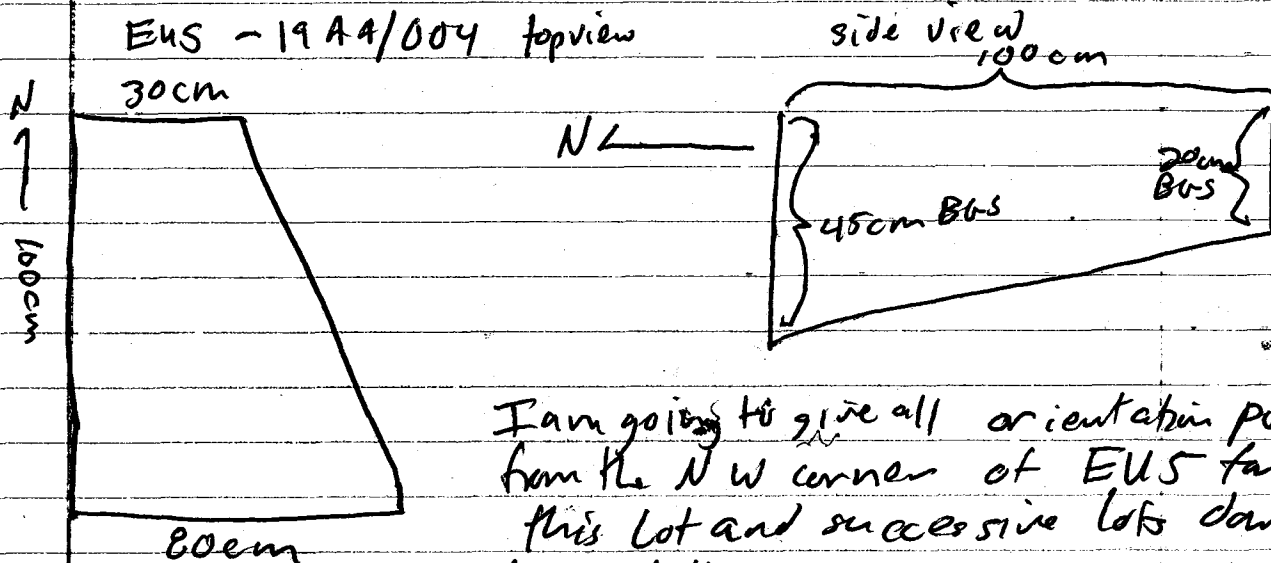 EU5 - 19AA/004 topview
side view
100cm
30cm
N
N
100cm
45cm BGS
20cm
BGS
80cm
I am going to give all orientation
from the NW corner of EU5 for
this Lot and successive lots